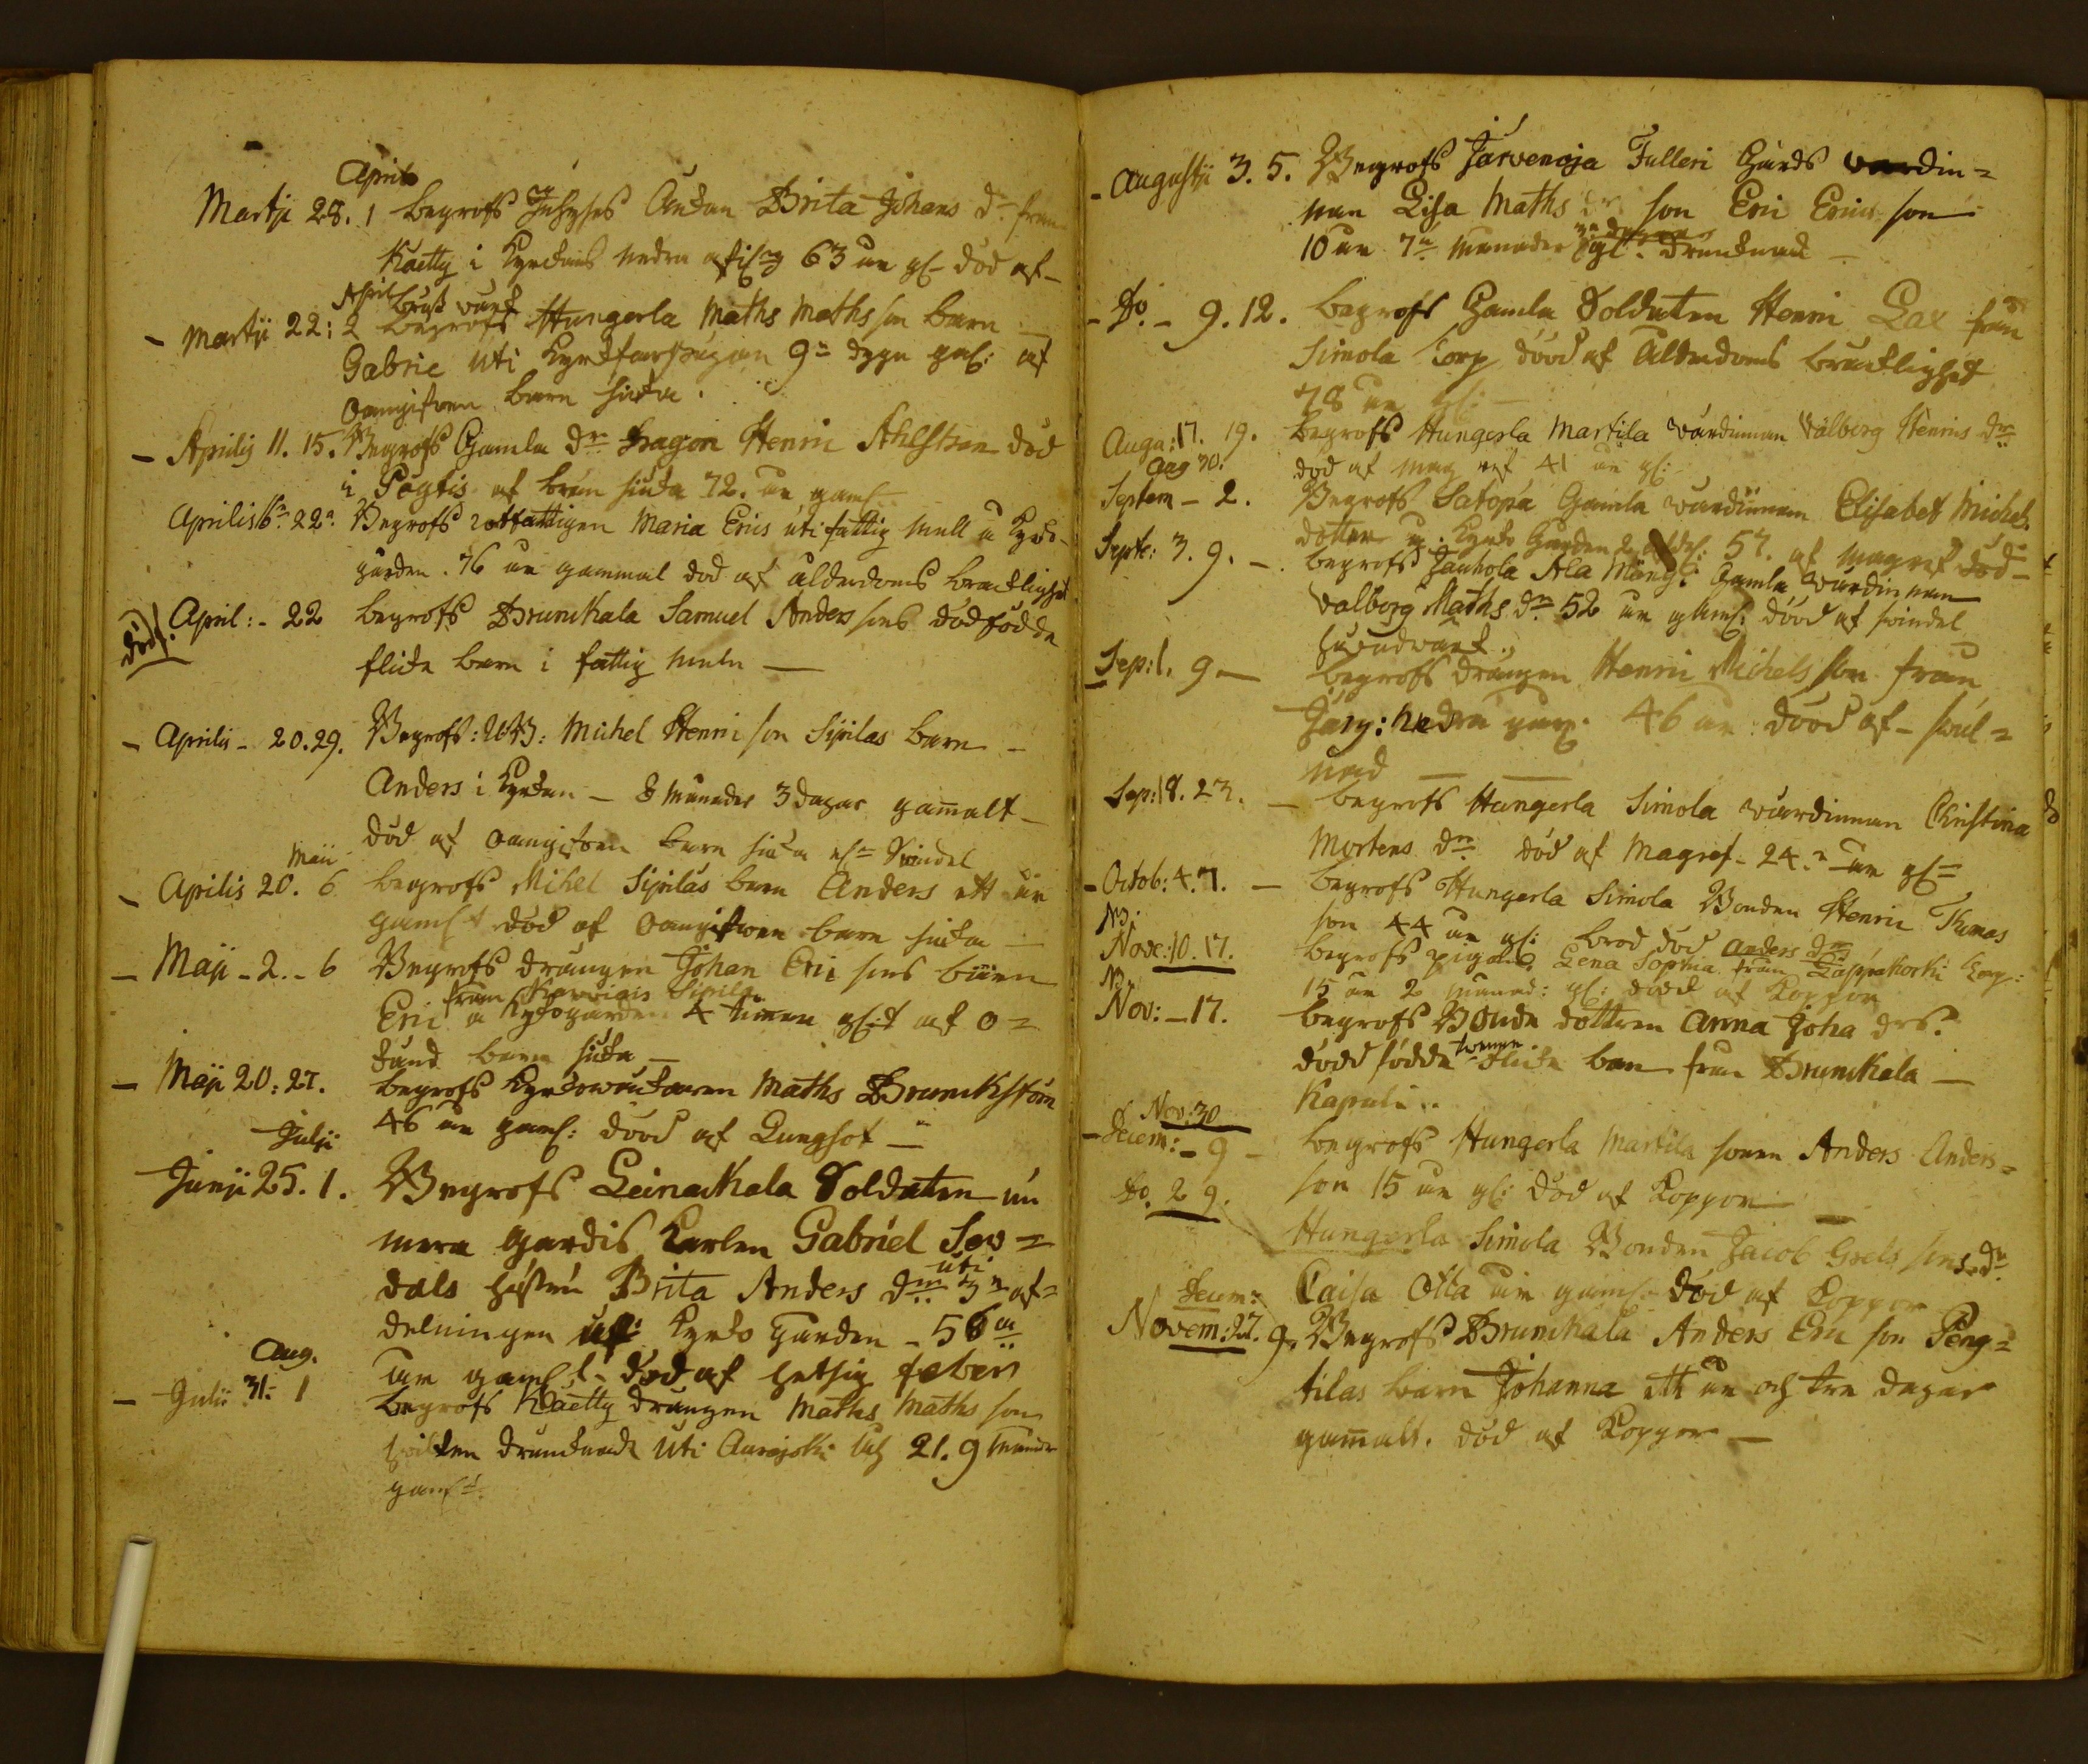 April
Martji 28. 1 begrofs Inhyses Enkan Brita Johans dr från
Kaetty i Kyrkans nedra 63 år gl död af
April bröst värk
Martji 22: 2 begrofs Hungerla Maths Maths son barn
Gabrie uti 9 dygn gal: af
oangifven barn siuka.
Aprilis 11. 15. Begrofs Gamla dr Dragon Henric Ahlström död
i Pøytis af siuka 72. år gaml
Aprilis 16 22 Begrofs rotfattigen Maria Erics uti fattig mull å Kyrko-
gården. 76 år gammal död af ålderdoms bräcklighet
död. April: - 22 begrofs Brunkala Samuel Anders sons dödfödde
flicke barn i fattig mula
Aprilis - 20. 29. Begrofs: Michel Henric son Sipilas barn
Anders i Kyrkan - 8 månader 3 dagar gamalt
död af oangifven barn siuka
Maii
Aprilis 20. 6 begrofs Mihel Sipilas barn Anders ett år
gamlt död af oangifven barn siuka
Maji - 2. - 6 Begrofs drängen Johan Eric sons barn
från Sipila
Eric å Kyrkogården 4 timar gl:t af o=
känd barn siuka
Maji 20: 27. begrofs Kyrkowäktaren Maths Brunckström
46 år gaml: död af Lungsot
Julji
Junji 25. 1. Begrofs Leinakkala Soldaten
mera gardis Karlen Gabriel
dals hustru Brita Anders dr uti 3 af=
delningen Kyrko Gården - 56
år gaml. död af hetsig feber
Aug.
Julii 31. 1 begrofs Kaetty drängen Maths Maths son
hvilken drunknade uti Aurajoki 21. 9 månader
gaml
Augustji 3. 5. Begrofs Järvenoja Fulleri Gårds vardin=
nan Lisa Maths dr son Eric Erics son
10 år 7 månader gl. drunknad
Do - 9. 12. begrofs Gamla Soldaten Henric Lax från
Simola torp död af Ålderdoms bräcklighet
78 år gl:
Augu: 17. 19. begrofs Hungerla Martila värdinnan Valborg Henrics dr
död af mag ref 41 år gl:
Aug 30.
Septem - 2. Begrofs Satopä Gamla värdinnan Elisabet Michels
dotter Kyrko Gården 57. af magref död
Septe: 3. 9. - begrofs Jauhola Ala Gamla värdinnan
Valborg Maths dr 52 år gaml: död af svindel
hufvudwärk.
Sep: 1. 9 - begrofs drängen Henric Michels son från
nedra 46 år död af - svul=
nad
Sep: 18. 23. - begrofs Hungerla Simola värdinnan Christina
Mortens dr död af Magref 24. år gl
Octob: 4. 7. - begrofs Hungerla Simola Bonden Henric Thomas
son 44 år gl: bråd död
Nove: 10. 17. begrofs pigan Lena Sophia Anders dr från Läpäkoski torp:
15 år 2 månad: gl: död af Koppor
Nov: - 17. begrofs Bonde dottren Anna Joha drs.
död födde tvenne flicke barn från Brunkala
Kapali..
Nov: 30
Decem: - 9 - begrofs Hungerla Martila sonen Anders Anders=
son 15 år gl: död af Koppor
Do. 2 9. Hungerla Simola Bonden Jacob Grels sons dr
Caisa Åtta år gaml. död af Koppor
Decem:
Novem: 27. 9. Begrofs Brunkala Anders Eric son Peng=
tilas barn Johanna ett år och tre dagar
gamalt. död af Koppor